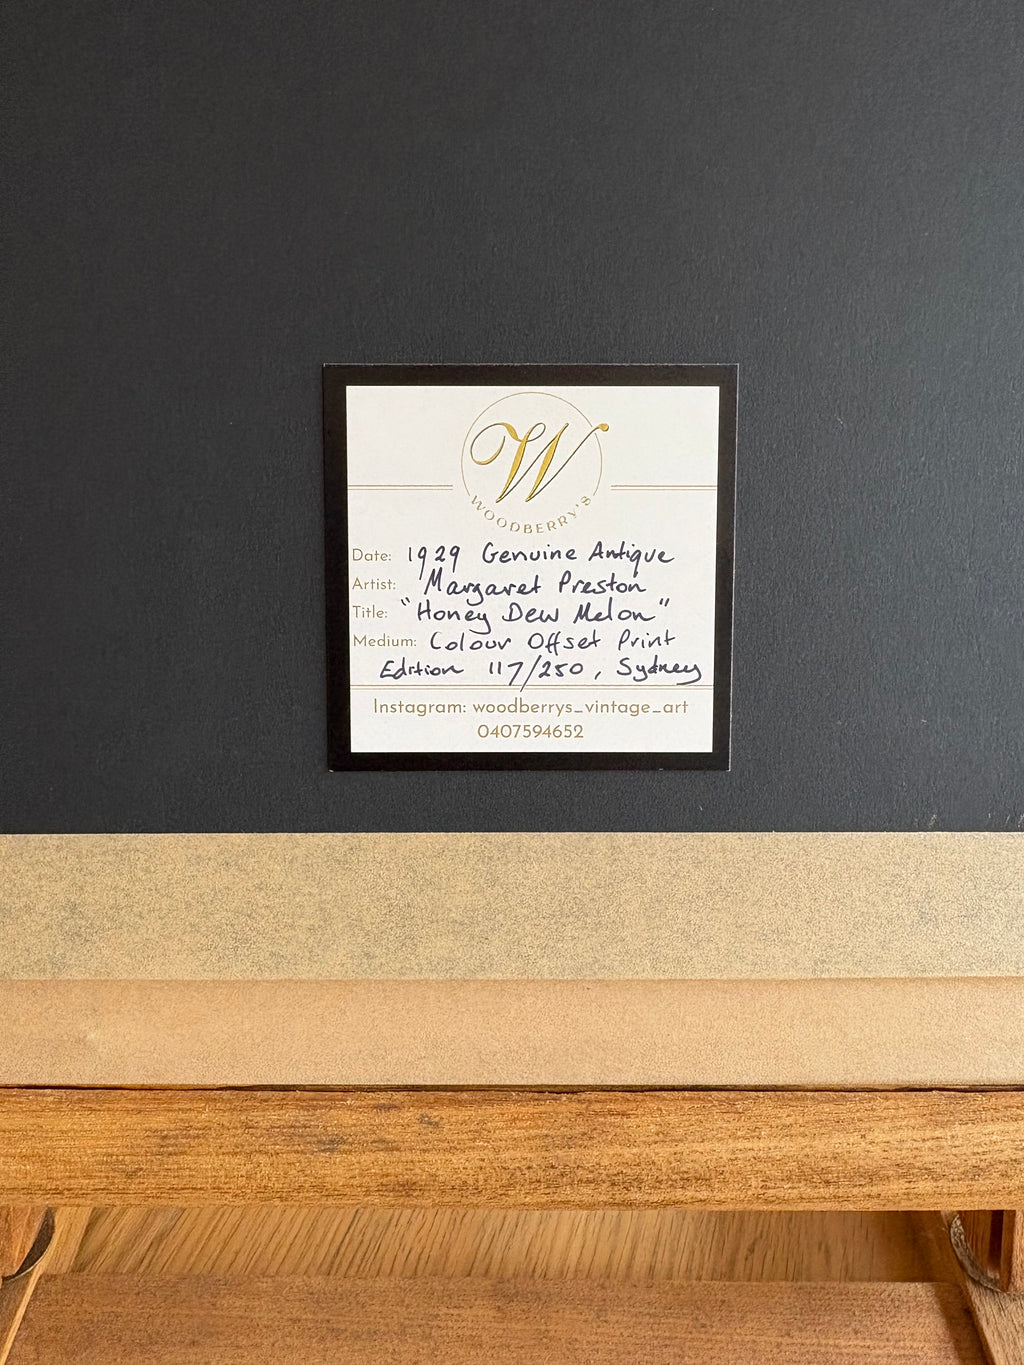 W
WOODBERRY'S
Date: 1929 Genuine Antique
Artist: Margaret Preston
Title: "Honey Dew Melon"
Medium: Colour Offset Print
Edition 117/250, Sydney
Instagram: woodberrys_vintage_art
0407594652